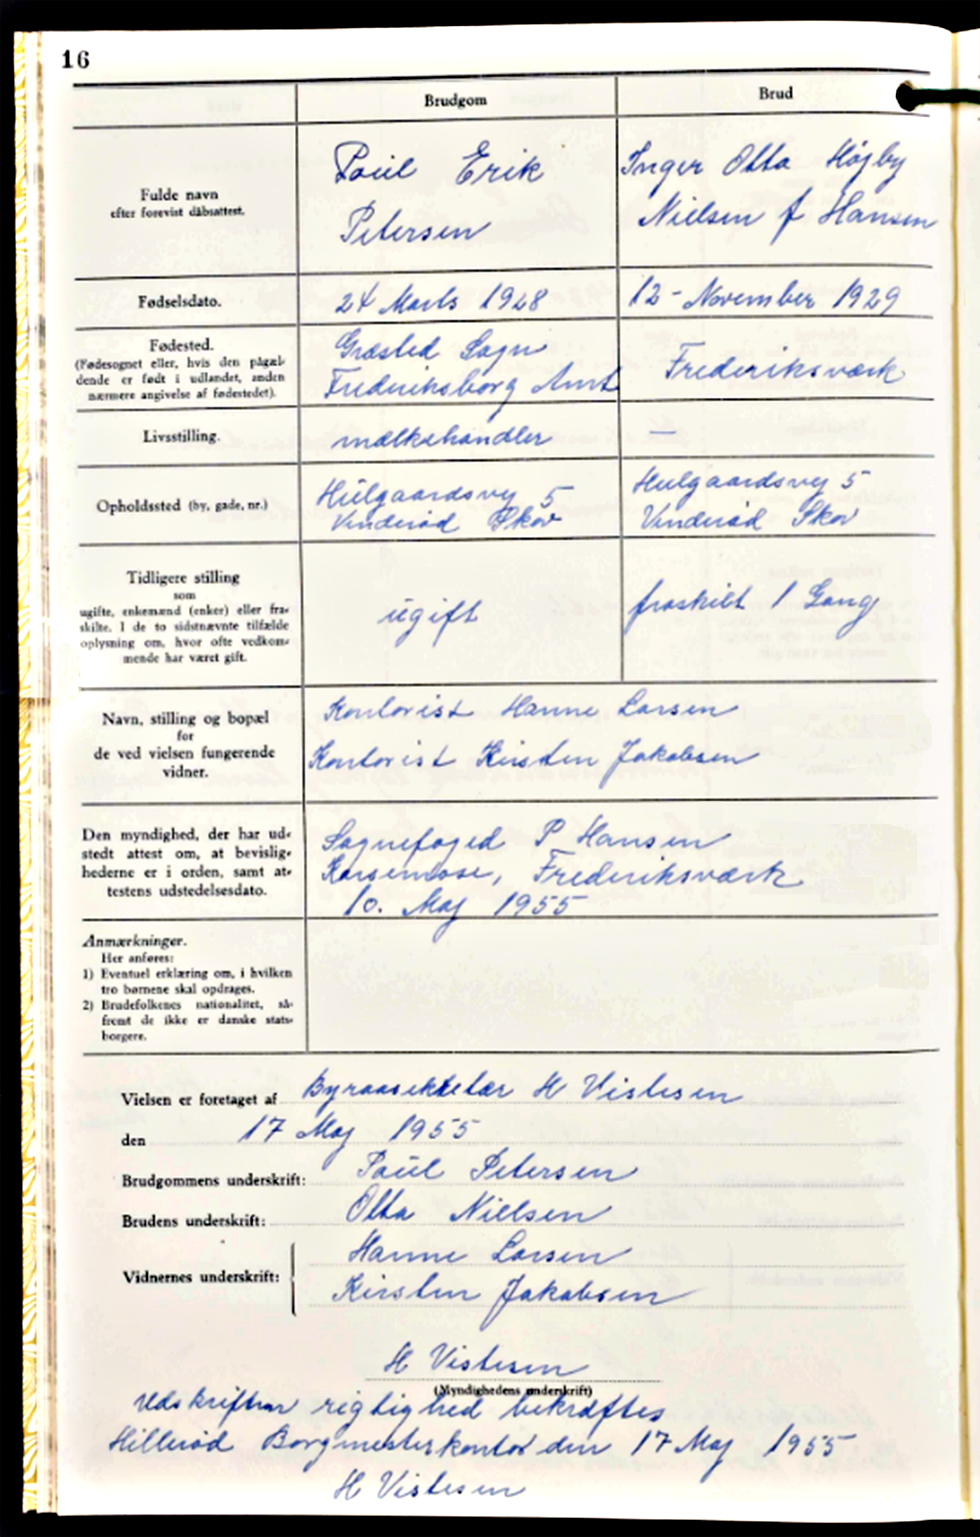 16
Brudgom
Brud
Fulde navn
efter forevist dåbsattest.
Poul Erik
Petersen
Inger Otta Højby
Nielsen f Hansen
Fødselsdato.
24 Marts 1928
12 - November 1929
Fødested.
(Fødesognet eller, hvis den pågæl-
dende er født i udlandet, anden
nærmere angivelse af fødestedet).
Græsted Sogn
Frederiksborg Amt
Frederiksværk
Livsstilling.
mælkehandler
—
Opholdssted (by, gade, nr.)
Hulgaardsvej 5
Vinderød Skov
Hulgaardsvej 5
Vinderød Skov
Tidligere stilling
som
ugifte, enkemænd (enker) eller fra-
skilte. I de to sidstnævnte tilfælde
oplysning om, hvor ofte vedkom-
mende har været gift.
ugift
fraskilt 1 Gang
Navn, stilling og bopæl
for
de ved vielsen fungerende
vidner.
Kontorist Hanne Larsen
Kontorist Kirsten Jakobsen
Den myndighed, der har ud-
stedt attest om, at bevislig-
hederne er i orden, samt at-
testens udstedelsesdato.
Sognefoged P Hansen
Karsemose, Frederiksværk
10. Maj 1955
Anmærkninger.
Her anføres:
1) Eventuel erklæring om, i hvilken
tro børnene skal opdrages.
2) Brudefolkenes nationalitet, så-
fremt de ikke er danske stats-
borgere.
Vielsen er foretaget af Byraadsekretær H Vistesen
den 17 Maj 1955
Brudgommens underskrift: Poul Petersen
Brudens underskrift: Otta Nielsen
Vidnernes underskrift: Hanne Larsen
Kirsten Jakobsen
H Vistesen
(Myndighedens underskrift)
Udskriftens rigtighed bekræftes
Hillerød Borgmesterkontor den 17 Maj 1955
H Vistesen